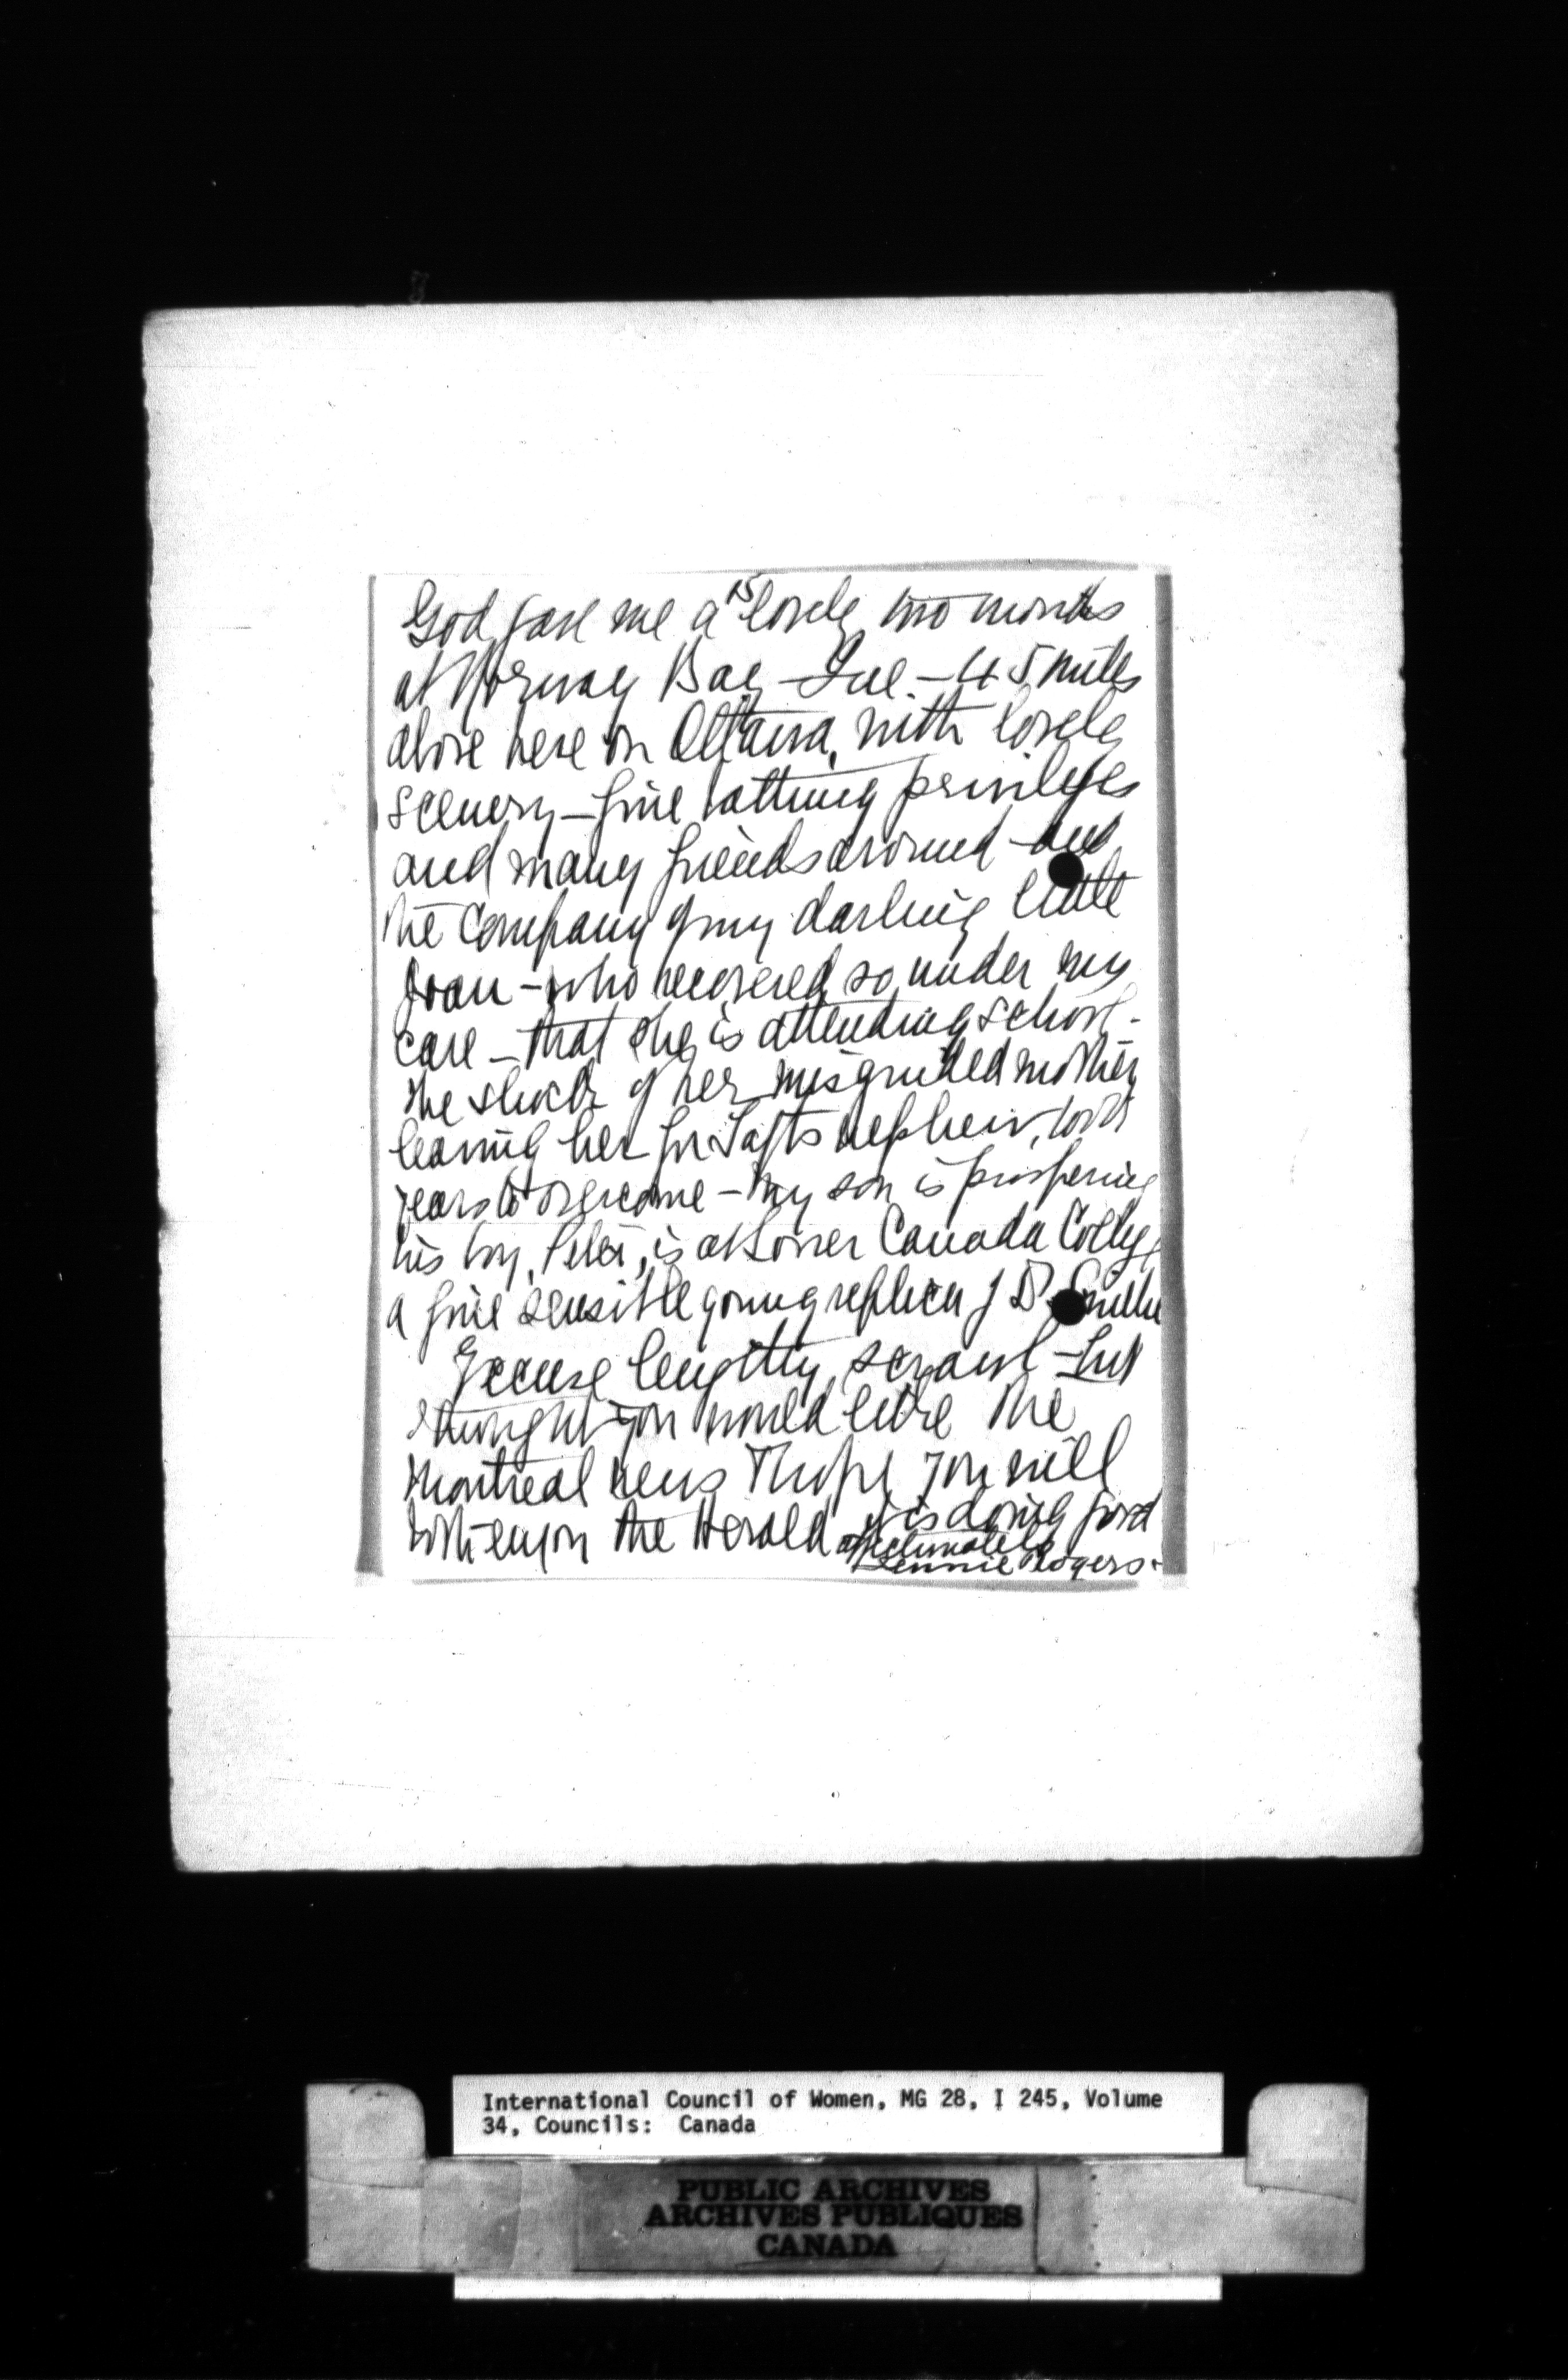 15
God gave me a lovely two months
at Norway Bay - Que. - 45 miles
above here on Ottawa, with lovely
scenery - fine bathing privileges
and many friends around - and
the company of my darling little
Joan - who recovered so under my
care - that she is attending school -
the shock of her misguided mother
leaving her for Tafts nephew, took
years to overcome - My son is prospering
his boy, Peter, is at Lower Canada College
a fine sensible young replica of D.
Excuse lengthy scrawl - but
thought you would like the
Montreal news I hope you will
both enjoy the Herald it is doing good
affectionately
Jennie Rogers.
International Council of Women, MG 28, I 245, Volume
34, Councils: Canada
PUBLIC ARCHIVES
ARCHIVES PUBLIQUES
CANADA